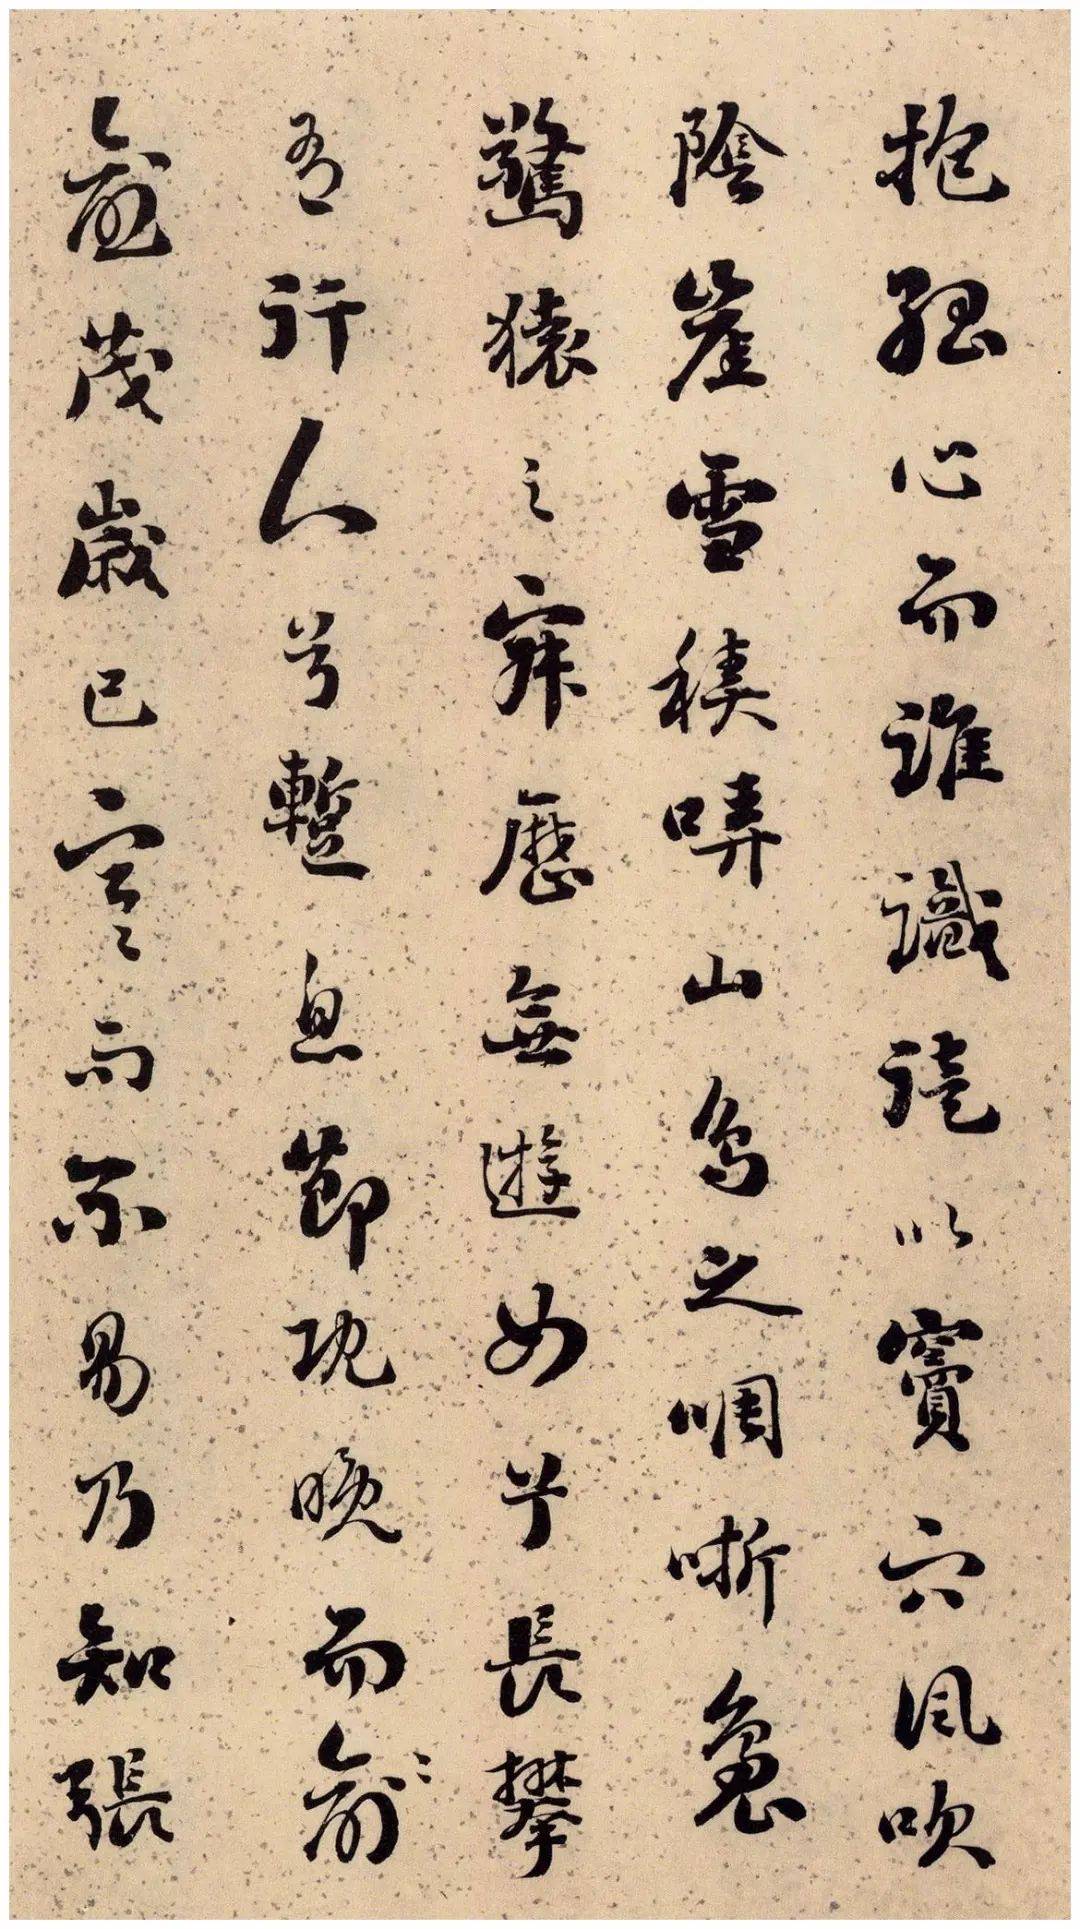 抱孤心而誰識徒以竇穴風吹
陰崖雪積哢山鳥之啁哳裊
驚猿之寂歷無遊女兮長攀
有行人兮蹔息節既晚而俞
愈茂歲已寒而不易乃知張